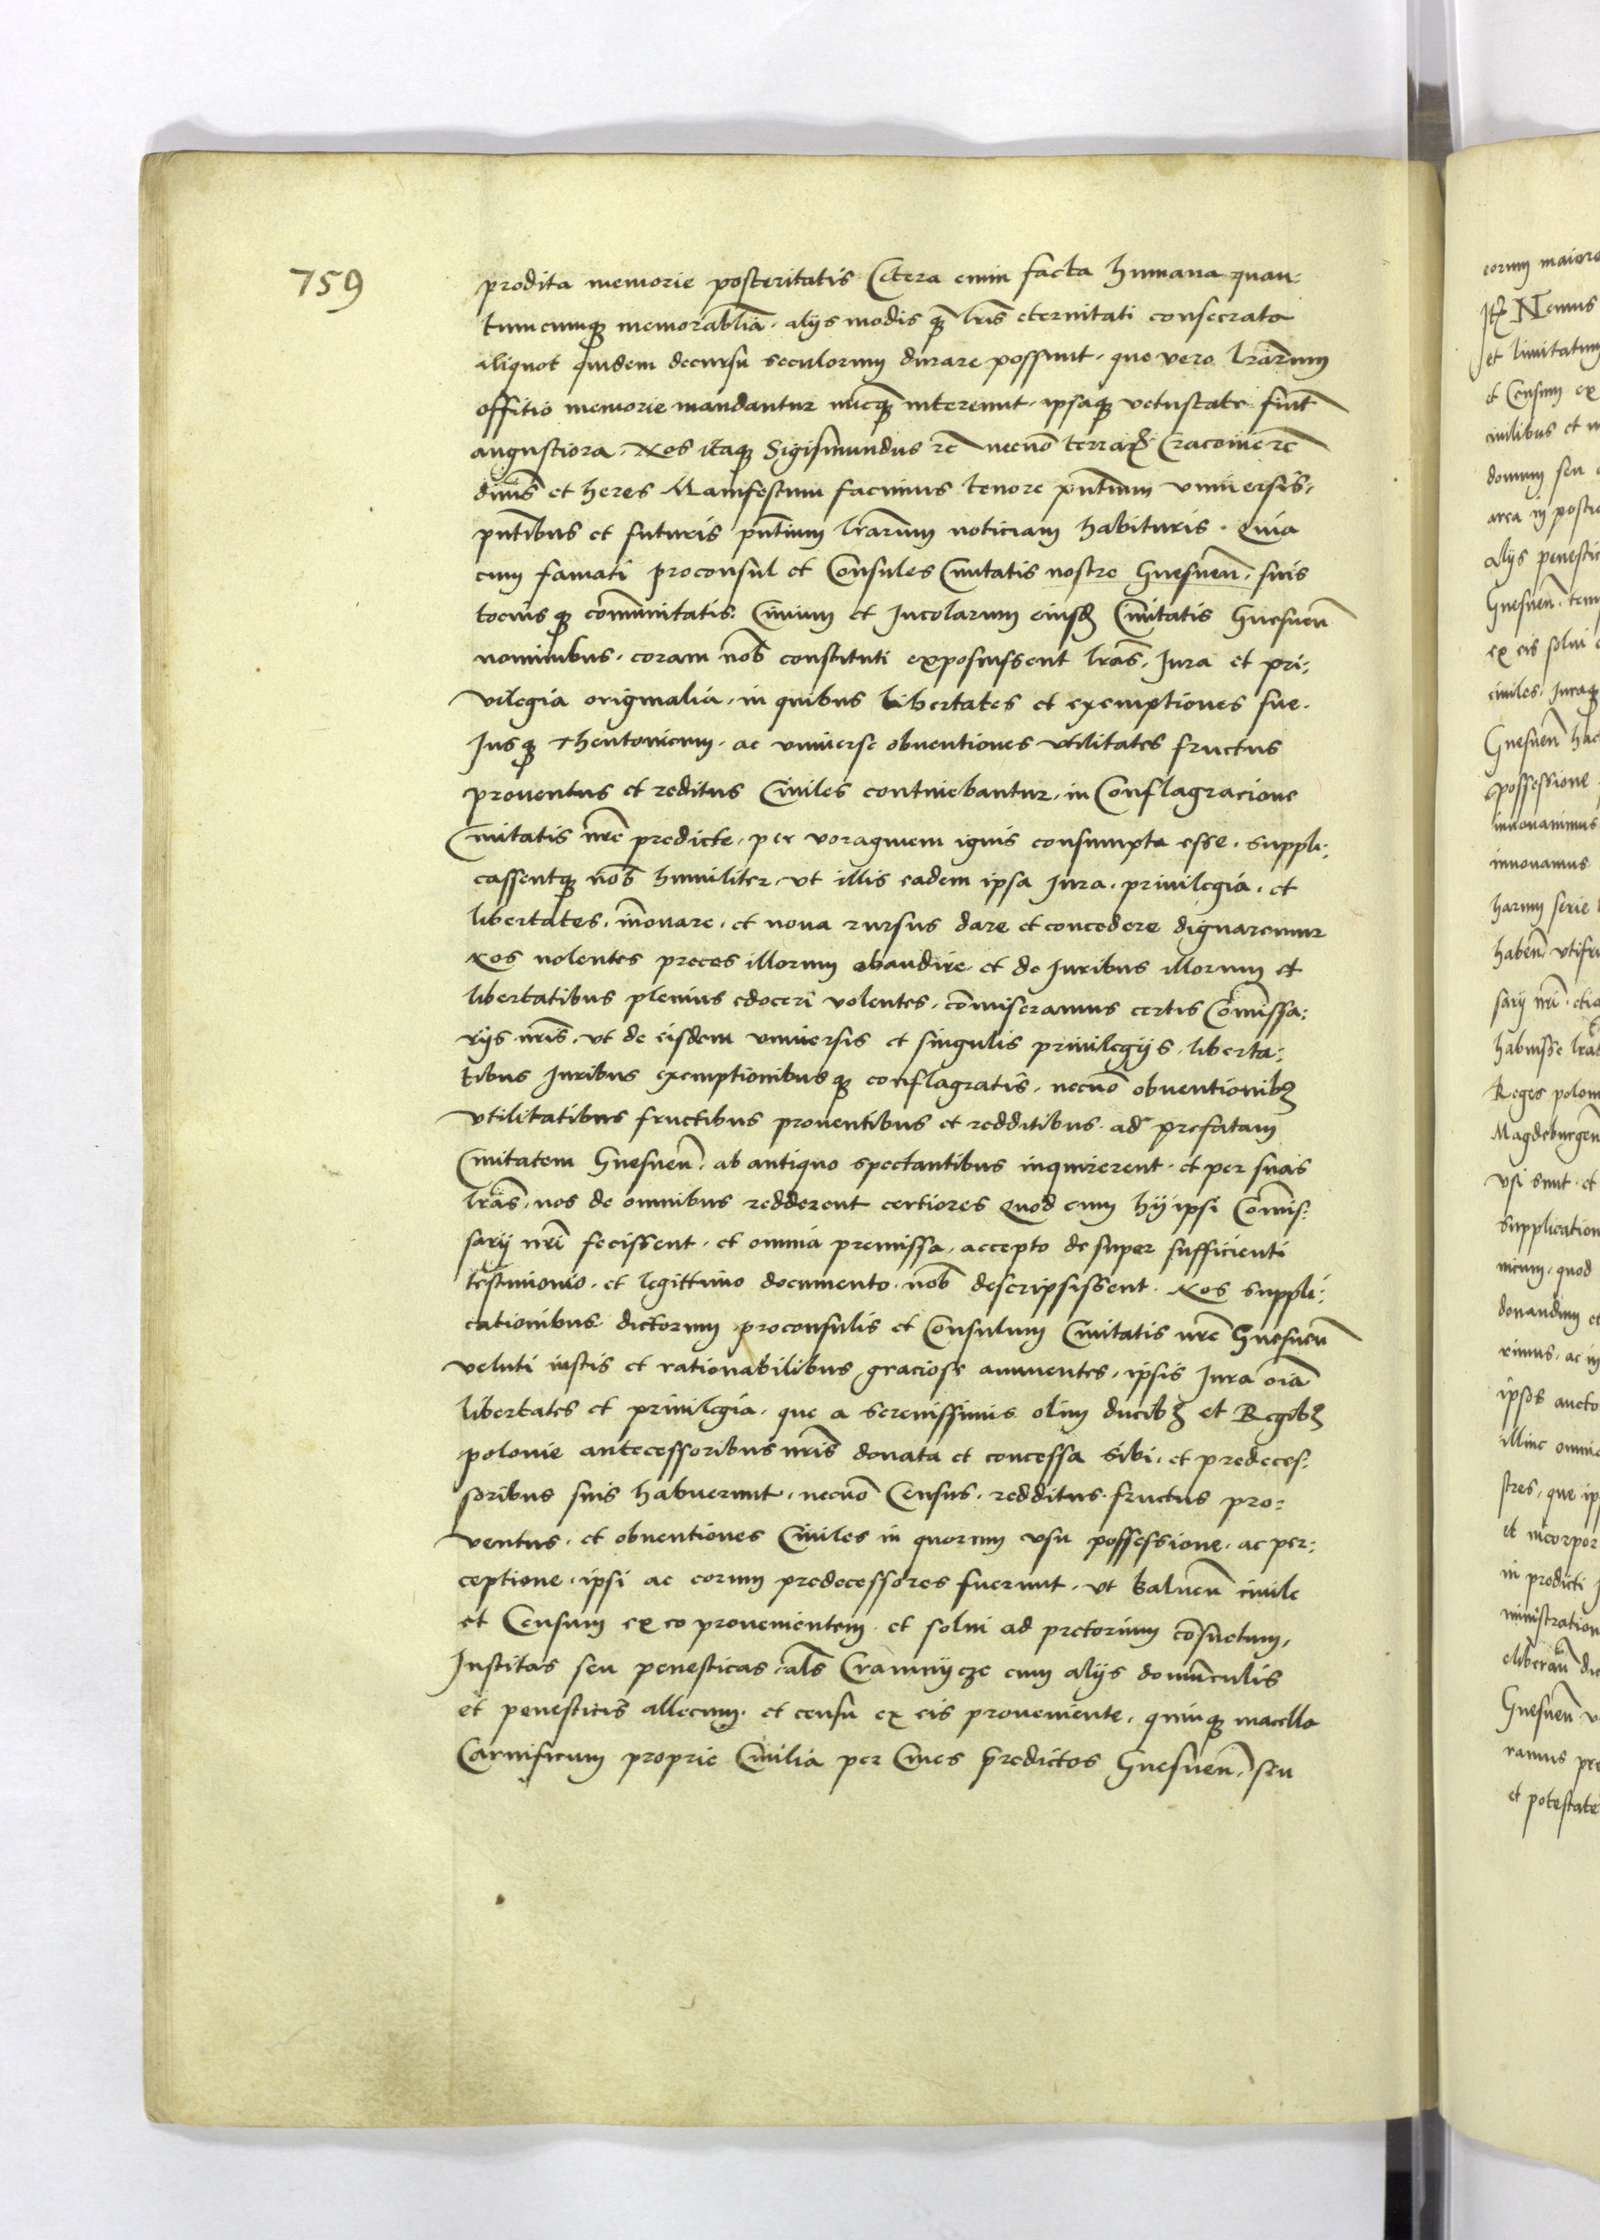 759
prodita memorie posteritatis Cetera enim facta humana quan-
tumcumq memorabilia. alijs modis q̃ lr̃is eternitati consecrata
aliquot quidem decursu seculorum durare possunt. que vero lr̃arum
offitio memorie mandantur nũcq̃ intereunt. ipsaq vetustate fiunt
angustiora. Nos itaq Sigismundus rẽ necnõ terraꝝ Cracovie rẽ
dñus et heres Manifestum facimus tenore pñtium universis.
pñtibus et futuris pñtium lr̃arum noticiam habituris. Quia
cum famati proconsul et Consules Civitatis nostre Gnesnẽn. suis
tociusq com̃unitatis. Civium et Incolarum eiusd̃ Civitatis Gnesneñ
nominibus. coram nob̃ constituti exposuissent lr̃as. Iura et pri:
vilegia originalia. in quibus libertates et exemptiones sue.
Iusq thentonicum. ac universe obventiones utilitates fructus
proventus et reditus Civiles continebantur. in Conflagracione
Civitatis nr̃e predicte. per voraginem ignis consumpta esse. suppli:
cassentq nob̃ humiliter. ut illis eadem ipsa Iura. privilegia. et
libertates. iñovare. et nova rursus dare et concedere dignaremur
Nos volentes preces illorum obaudire et de Iuribus illorum et
libertatibus plenius edoceri volentes. com̃iseramus certis Com̃issa:
rijs nr̃is. ut de eisdem universis et singulis privilegijs. liberta:
tibus Iuribus exemptionibusq conflagratis. necnõ obventionibꝫ
utilitatibus fructibus proventibus et redditibus. ad prefatam
Civitatem Gnesneñ. ab antiquo spectantibus inquirerent. et per suas
lr̃as. nos de omnibus redderent certiores Quod cum hij ipsi Com̃is:
sarij nr̃i fecissent. et omnia premissa. accepto de super sufficienti
testimonio. et legittimo documento. nob̃ descripsissent. Nos suppli:
cationibus dictorum proconsulis et Consulum Civitatis nr̃e Gnesneñ
veluti iustis et rationabilibus graciose annuentes. ipsis Iura oĩa
libertates et privilegia. que a serenissimis olim ducibꝫ et Regibꝫ
polonie antecessoribus nr̃is donata et concessa sibi. et predeces:
soribus suis habuerunt. necnõ Census. redditus. fructus pro:
ventus. et obventiones Civiles in quorum usu possessione. ac per:
ceptione. ipsi ac eorum predecessores fuerunt. ut balneũ civile
et Censum ex eo provenientem. et solvi ad pretorium cõsuetum.
Institas seu penesticas. al̃s Cramnÿcze cum alijs domũculis
et penesticis allecum. et censu ex eis proveniente. quinq macella
Carnificum proprie Civilia per Cives predictos Gnesneñ. seu
eorum maiora
Itꝫ Nemus
et limitatum
et Censum ex
civilibus et
domum seu
area in postic
alijs penestic
Gnesneñ. tem
ex eis solvi
civiles. Iuraq
Gnesneñ hac
possessione
innovamus
harum serie
habeñ utifru
sarij nr̃i. etia
habuisse lr̃as
Reges polon
Magdeburgeñ
usi sunt. et
supplication
nicum. quod
donandum et
rimus. ac in
ipsos aucto
illinc omnia
stres. que ip
et incorpor
in predicti
ministration
Gnesneñ
ramus pre
et potestate